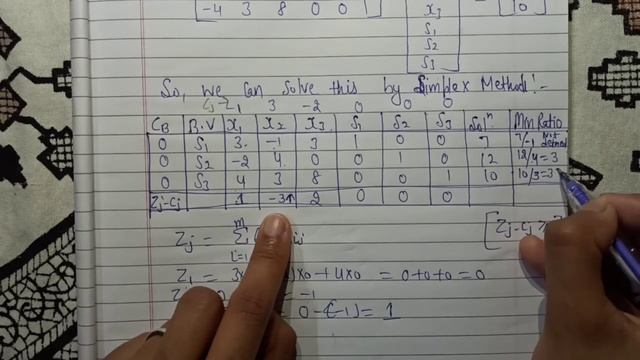 -4 3 8 0 0 1
x3 = 10
S1
S2
S3
So, we can solve this by Simplex Method:-
Cj -1 3 -2 0 0 0
CB B.V x1 x2 x3 S1 S2 S3 Soln Min Ratio
0 S1 3 -1 3 1 0 0 7 7/-1 Not defined
0 S2 -2 4 0 0 1 0 12 12/4=3
0 S3 4 3 8 0 0 1 10 10/3=3
Zj-Cj 1 -3↑ 2 0 0 0
Zj = m Σ i=1 [Zj-Cj ≥
Z1 = 3x +4x0 = 0+0+0=0
0-(-1)=1